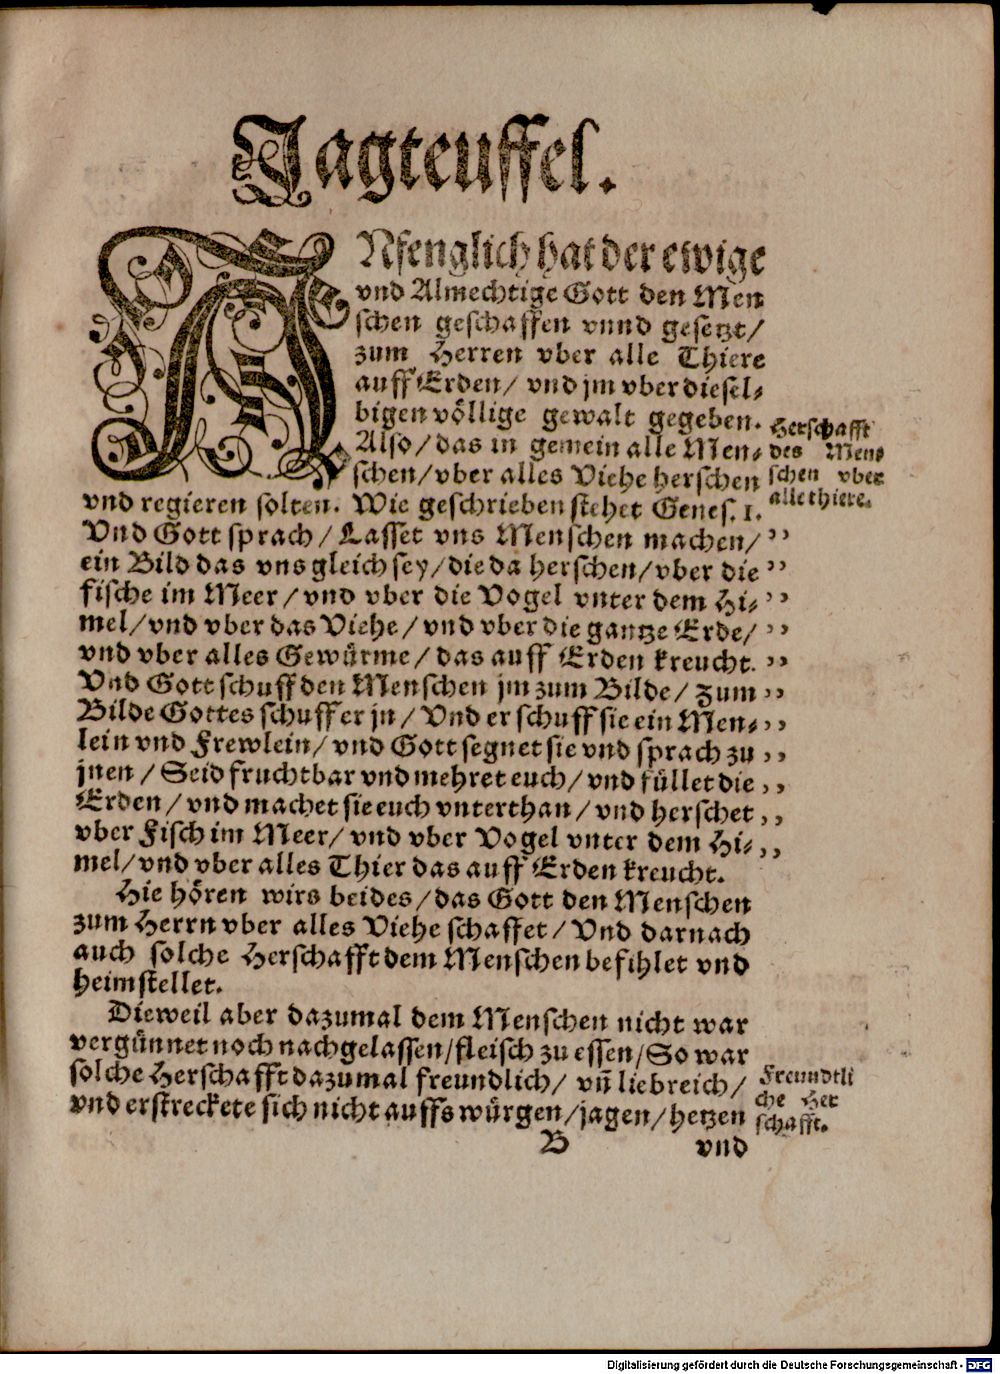 Jagteuffel.
ANfenglich hat der ewige
vnd Almechtige Gott den Men
schen geschaffen vnnd gesetzt/
zum Herren vber alle Thiere
auff Erden/ vnd jm vber diesel⸗
bigen völlige gewalt gegeben.
Also/ das in gemein alle Men⸗
schen/ vber alles Viehe herschen
vnd regieren solten. Wie geschrieben stehet Genes. 1.
Herschafft
des Men⸗
schen vber
alle thiere.
Vnd Gott sprach/ Lasset vns Menschen machen/ ”
ein Bild das vns gleich sey/ die da herschen/ vber die ”
fische im Meer/ vnd vber die Vogel vnter dem Hi⸗ ”
mel/ vnd vber das Viehe/ vnd vber die gantze Erde/ ”
vnd vber alles Gewürme/ das auff Erden kreucht. ”
Vnd Gott schuff den Menschen jm zum Bilde/ zum ”
Bilde Gottes schuff er jn/ Vnd er schuff sie ein Men⸗ ”
lein vnd Frewlein/ vnd Gott segnet sie vnd sprach zu ”
jnen/ Seid fruchtbar vnd mehret euch/ vnd füllet die ”
Erden/ vnd machet sie euch vnterthan/ vnd herschet ”
vber Fisch im Meer/ vnd vber Vogel vnter dem Hi⸗ ”
mel/ vnd vber alles Thier das auff Erden kreucht.
Hie hören wirs beides/ das Gott den Menschen
zum Herrn vber alles Viehe schaffet/ Vnd darnach
auch solche Herschafft dem Menschen befihlet vnd
heimstellet.
Dieweil aber dazumal dem Menschen nicht war
vergünnet noch nachgelassen/ fleisch zu essen/ So war
solche Herschafft dazumal freundlich/ vn̄ liebreich/
vnd erstreckete sich nicht auffs würgen/ jagen/ hetzen
Freundtli
che Her
schafft.
B vnd
Digitalisierung gefördert durch die Deutsche Forschungsgemeinschaft - DFG